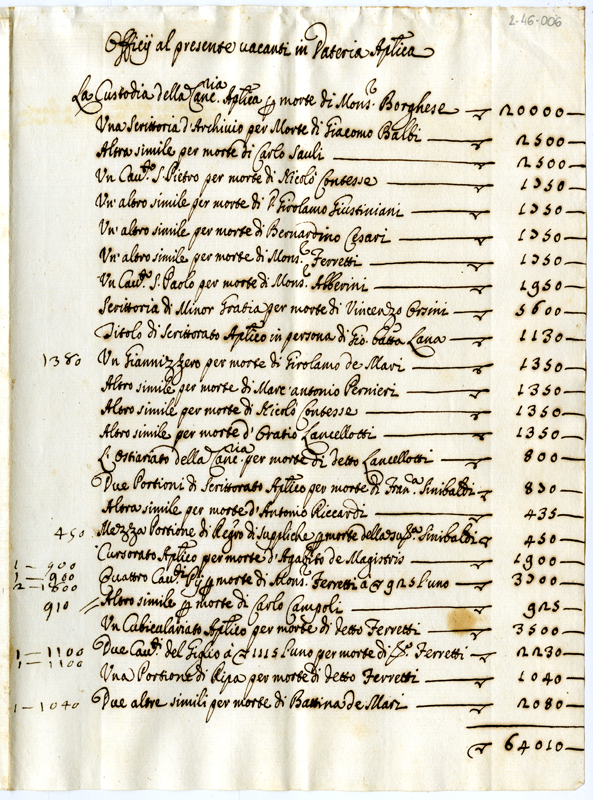 2-46-006
Officij al presente vacanti in Dateria Aplica
La Custodia della Canc.ria Aplica p morte di Mons.r Borghese 20000
Una Scrittoria d'Archivio per Morte di Giacomo Balbi 2500
Altra simile per morte di Carlo Sauli 2500
Un Cau.to S. Pietro per morte di Nicolò Contesse 1350
Un' altro simile per morte di Girolamo Giustiniani 1350
Un' altro simile per morte di Bernardino Cesari 1350
Un' altro simile per morte di Mons.r Ferretti 1350
Un Cau.to S. Paolo per morte di Mons.r Alberini 1950
Scrittoria di Minor Gratia per morte di Vincenzo Orsini 5600
Titolo di Scrittorato Aplico in persona di Gio. batta Lana 1130
1380 Un Giannizzero per morte di Girolamo de Mari 1350
Altro simile per morte di Marc'antonio Pernieri 1350
Altro simile per morte di Nicolò Contesse 1350
Altro simile per morte d'Oratio Lancellotti 1350
L'Ostiariato della Canc.ria per morte di detto Lancellotti 800
Due Portioni di Scrittorato Aplico per morte di Fran.co Sinibaldi 830
Altra simile per morte d'Antonio Riccardi 435
450 Mezza Portione di Reg.ro di Suppliche p morte della Sinibaldi 450
Cursorato Aplico per morte d'Agabito de Magistris 1900
1 - 900
1 - 900 Quattro Cau.ti p morte di Mons. Ferretti à 925 l'uno 3700
2 - 1800
910 Altro simile p morte di Carlo Campoli 925
Un Cubiculariato Aplico per morte di detto Ferretti 3500
1 - 1100 Due Cau.ti del Giglio à 1115 l'uno per morte di Ferretti 2230
1 - 1100
Una Portione di Ripa per morte di detto Ferretti 1040
1 - 1040 Due altre simili per morte di Battina de Mari 2080
64010